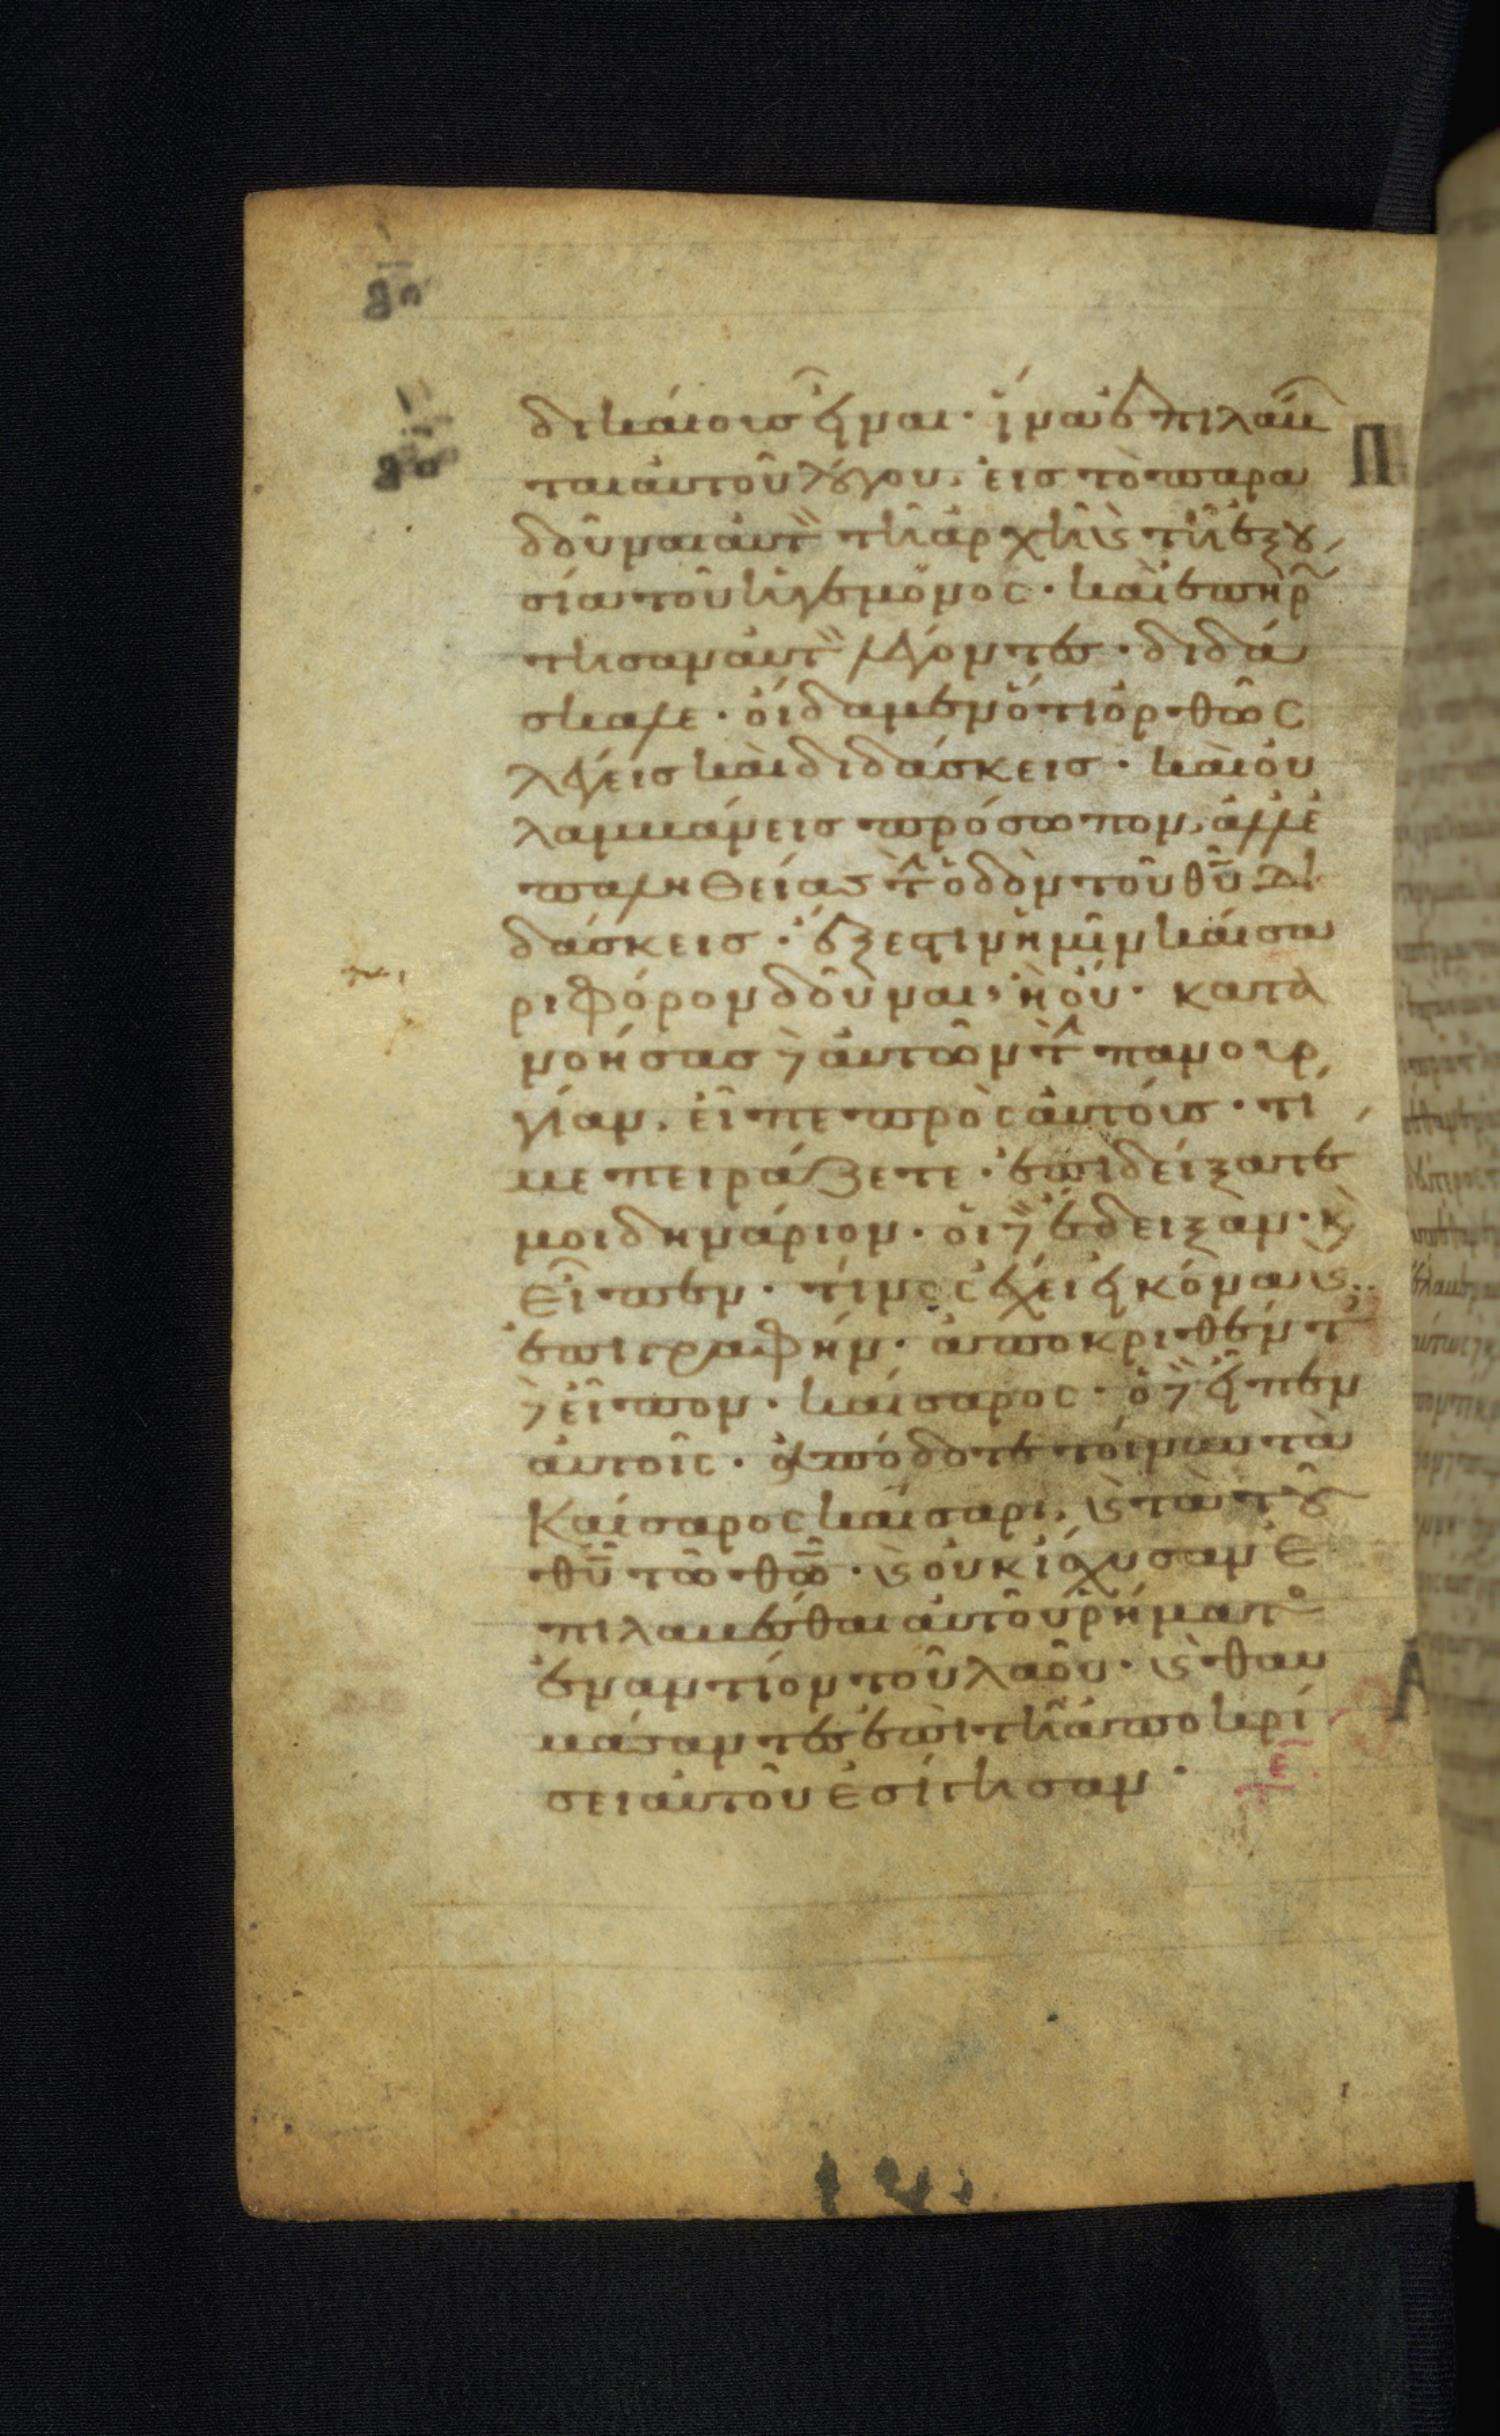 δικαίοις εἶναι· ἵνα ἐπιλάβων
ται αὐτοῦ λόγου, εἰς τὸ παρα
δοῦναι αὐτὸν τῆ ἀρχῆ καὶ τῆ ἐξου
σία τοῦ ἡγεμόνος· καὶ ἐπηρώ
τησαν αὐτὸν λέγοντες· διδά
σκαλε· οἴδαμεν ὅτι ὀρθῶς
λέγεις καὶ διδάσκεις· καὶ οὐ
λαμβάνεις πρόσωπον, ἀλλ' ἐ
π' ἀληθείας τὴν ὁδὸν τοῦ θῦ δι
δάσκεις· ἔξεστιν ἡμῖν καίσα
ρι φόρον δοῦναι, ἢ οὔ· κατα
νοήσας δὲ αὐτῶν τὴν πανουρ
γίαν, εἶπε πρὸς αὐτούς· τί
με πειράζετε· ἐπιδείξατέ
μοι δηνάριον· οἱ δὲ ἔδειξαν· κ
εἶπεν· τίνος ἔχει εἰκόνα καὶ
ἐπιγραφήν· ἀποκριθέντες
δὲ εἶπον· καίσαρος· ὁ δὲ εἶπεν
αὐτοῖς· ἀπόδοτε τοίνυν τὰ
Καίσαρος καίσαρι, καὶ τὰ τοῦ
θῦ τῶ θῶ· καὶ οὐκ ἴσχυσαν ἐ
πιλαβέσθαι αὐτοῦ ῥήματος
ἐναντίον τοῦ λαοῦ· καὶ θαυ
μάσαντες ἐπὶ τῆ ἀποκρί
σει αὐτοῦ ἐσίγησαν·